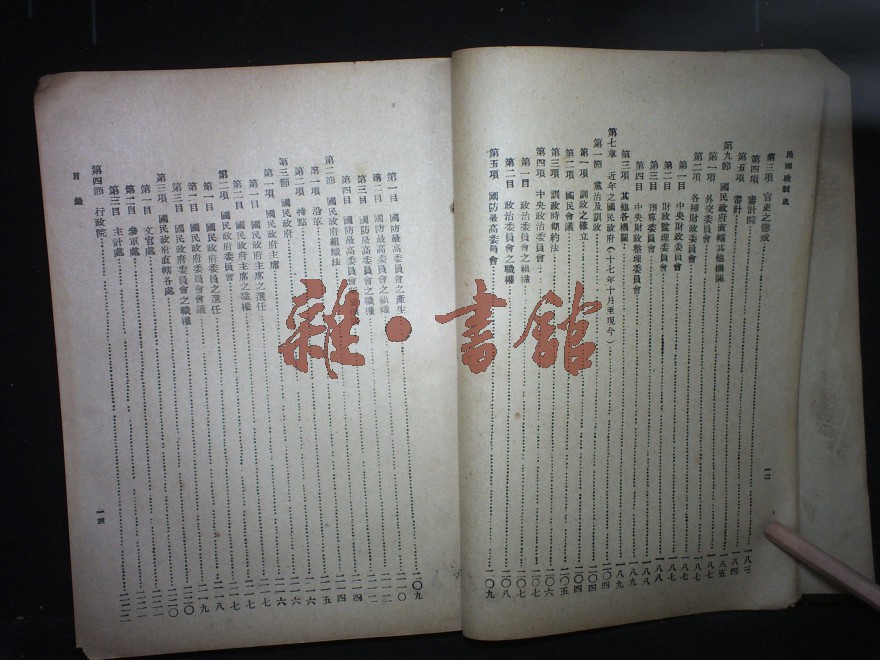 民國政制史
第三項 官吏之懲戒 一八三
第四項 審計院
第五項 審計 一八四
第九節 國民政府直轄其他機關 一八五
第一項 外交委員會 一八七
第二項 各種財政委員會 一八七
第一目 中央財政委員會 一八七
第二目 財政監理委員會 一八七
第三目 預算委員會 一八八
第四目 中央財政整理委員會 一八八
第三項 其他各機關 一八九
第七章 近年之國民政府(十七年十月至現今)
第一節 黨治及訓政 二〇四
第一項 訓政之確立 二〇四
第二項 國民會議 二〇五
第三項 訓政時期約法 二〇六
第四項 中央政治委員會 二〇七
第一目 政治委員會之組織 二〇七
第二目 政治委員會之職權 二〇八
第五項 國防最高委員會 二〇九
一二
第一目 國防最高委員會之產生 二〇九
第二目 國防最高委員會之組織 二一〇
第三目 國防最高委員會之職權
第四目 國防最高委員會
第二節 國民政府組織法 二一四
第一項 沿革 二一五
第二項 特點 二一六
第三節 國民政府 二一六
第一項 國民政府主席 二一七
第一目 國民政府主席之選任 二一七
第二目 國民政府主席之職權 二一七
第二項 國民政府委員會 二一八
第一目 國民政府委員之選任 二一九
第二目 國民政府委員會會議 二二〇
第三目 國民政府委員會之職權 二二〇
第三項 國民政府直轄各處
第一目 文官處
第二目 參軍處
第三目 主計處
第四節 行政院
目錄
一三
雜·書館